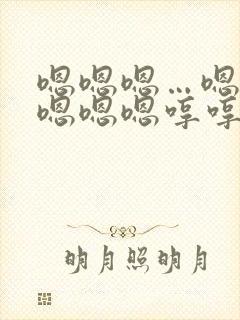 嗯嗯嗯…嗯
嗯嗯嗯哼哼
明月照明月